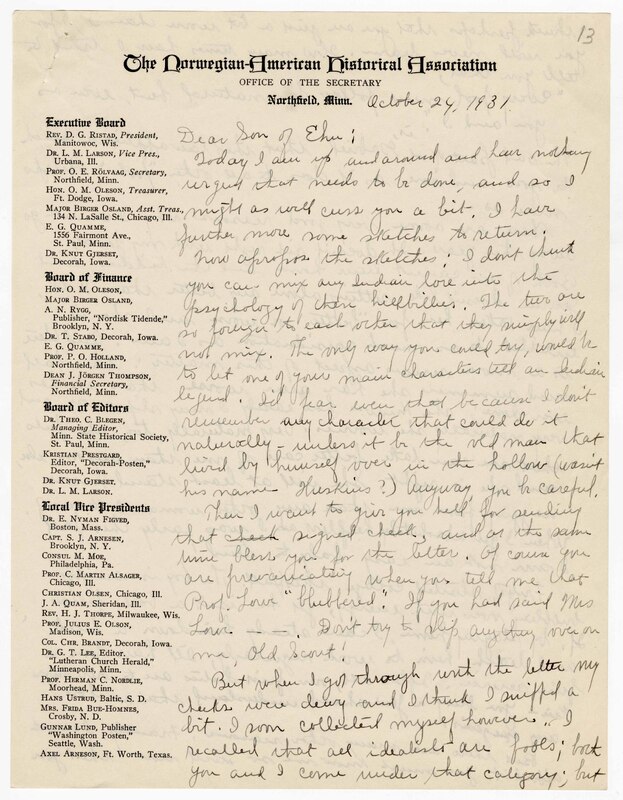 13
The Norwegian-American Historical Association
OFFICE OF THE SECRETARY
Northfield, Minn. October 24, 1931
Executive Board
REV. D. G. RISTAD, President,
Manitowoc, Wis.
DR. L. M. LARSON, Vice Pres.,
Urbana, Ill.
PROF. O. E. RÖLVAAG, Secretary,
Northfield, Minn.
HON. O. M. OLESON, Treasurer,
Ft. Dodge, Iowa.
MAJOR BIRGER OSLAND, Asst. Treas.,
134 N. LaSalle St., Chicago, Ill.
E. G. QUAMME,
1556 Fairmont Ave.,
St. Paul, Minn.
DR. KNUT GJERSET,
Decorah, Iowa.
Board of Finance
HON. O. M. OLESON,
MAJOR BIRGER OSLAND,
A. N. RYGG,
Publisher, "Nordisk Tidende,"
Brooklyn, N. Y.
DR. T. STABO, Decorah, Iowa.
E. G. QUAMME,
PROF. P. O. HOLLAND,
Northfield, Minn.
DEAN J. JÖRGEN THOMPSON,
Financial Secretary,
Northfield, Minn.
Board of Editors
DR. THEO. C. BLEGEN,
Managing Editor,
Minn. State Historical Society,
St. Paul, Minn.
KRISTIAN PRESTGARD,
Editor, "Decorah-Posten,"
Decorah, Iowa.
DR. KNUT GJERSET,
DR. L. M. LARSON.
Local Vice Presidents
DR. E. NYMAN FIGVED,
Boston, Mass.
CAPT. S. J. ARNESEN,
Brooklyn, N. Y.
CONSUL M. MOE,
Philadelphia, Pa.
PROF. C. MARTIN ALSAGER,
Chicago, Ill.
CHRISTIAN OLSEN, Chicago, Ill.
J. A. QUAM, Sheridan, Ill.
REV. H. J. THORPE, Milwaukee, Wis.
PROF. JULIUS E. OLSON,
Madison, Wis.
COL. CHR. BRANDT, Decorah, Iowa.
DR. G. T. LEE, Editor,
"Lutheran Church Herald,"
Minneapolis, Minn.
PROF. HERMAN C. NORDLIE,
Moorhead, Minn.
HANS USTRUD, Baltic, S. D.
MRS. FRIDA BUE-HOMNES,
Crosby, N. D.
GUNNAR LUND, Publisher
"Washington Posten,"
Seattle, Wash.
AXEL ARNESON, Ft. Worth, Texas.
Dear Son of Ehu;
Today I am up and around and have nothing
urgent that needs to be done, and so I
might as well cuss you a bit. I have
further more some sketches to return.
Now apropos the sketches: I don't think
you can mix any Indian lore into the
psychology of them hillbillies. The two are
so foreign to each other that they simply will
not mix. The only way you could try, would be
to let one of your main characters tell an Indian
legend. I'd fear even that because I don't
remember any character that could do it
naturally – unless it be the old man that
lived by himself over in the hollow (wasn't
his name Huskins?) Anyway, you be careful.
Then I want to give you hell for sending
that check signed check, and at the same
time bless you for the letter. Of couse you
are prevaricating when you tell me that
Prof. Lowe "blubbered". If you had said Mrs
Lowe – – –. Don't try to slip anything over on
me, Old Scout!
But when I got through with the letter my
cheeks were dewy and I think I sniffed a
bit. I soon collected myself however. I
recalled that all idealists are fools; both
you and I come under that category; but